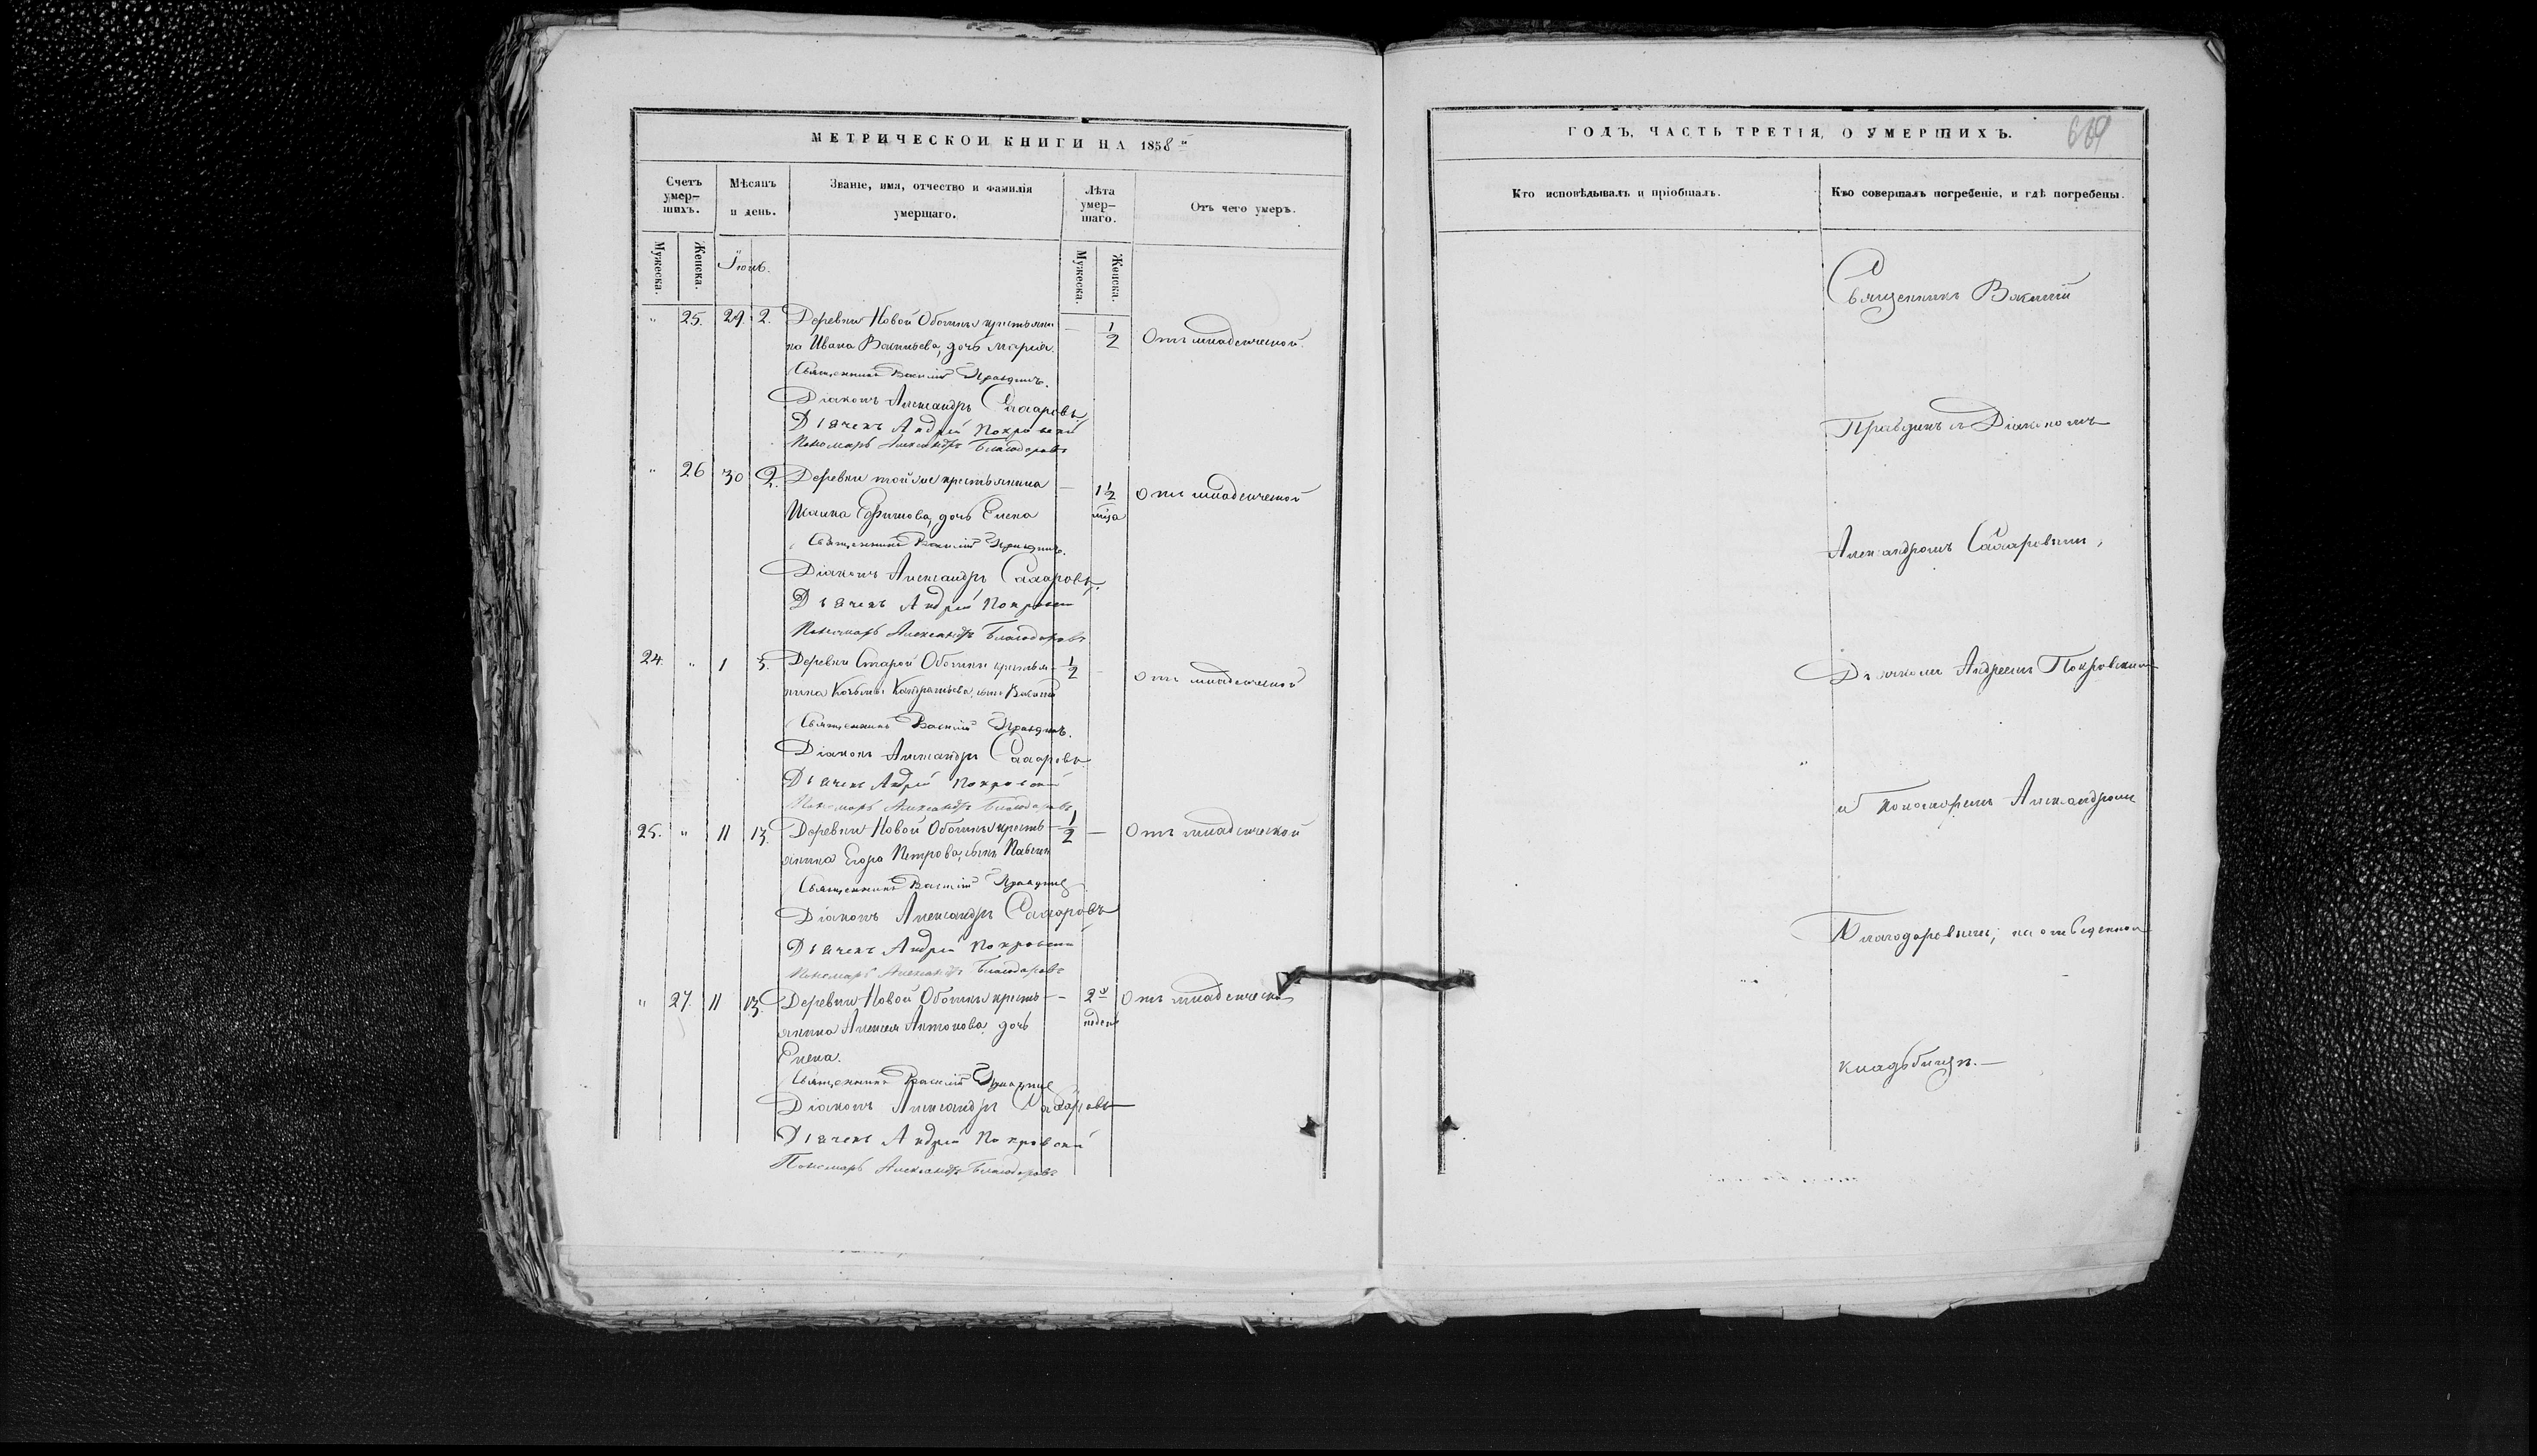 МЕТРИЧЕСКОЙ КНИГИ НА 1858й
Счетъ умер-шихъ.
Мѣсяцъ и день.
Званіе, имя, отчество и фамилія умершаго.
Лѣта умер-шаго.
Отъ чего умеръ.
Мужеска.
Женска.
Мужеска.
Женска.
" 25. 29. 2. Деревни Новой крестьяни 1/2
на Ивана Васильева, дочь Марія. Отъ младенческой.
Священникъ Василій Правдинъ.
Діаконъ Александръ Сахаровъ
Дьячекъ Андрей Покровскій
Пономарь Александръ Благодаровъ
" 26 30 2. Деревни той же крестьянина — 1 1/2 мца Отъ младенческой
Ефимова, дочь Елена
Священникъ Василій Правдинъ.
Діаконъ Александръ Сахаровъ.
Дьячекъ Андрей Покровскій
Пономарь Александръ Благодаровъ
24. " 1 3. Деревни Старой крестья- 1/2 — Отъ младенческой
нина Козьмы Кондратьева, сынъ
Священникъ Василій Правдинъ.
Діаконъ Александръ Сахаровъ
Дьячекъ Андрей Покровскій
Пономарь Александръ Благодаровъ
25. " 11 13. Деревни Новой кресть- 1/2 — Отъ младенческой
янина Егора Петрова, сынъ Павелъ
Священникъ Василій Правдинъ
Діаконъ Александръ Сахаровъ
Дьячекъ Андрей Покровскій
Пономарь Александръ Благодаровъ
" 27. 11 13. Деревни Новой кресть- — 2х недель Отъ младенческой
янина Алексея Антонова, дочь
Елена.
Священникъ Василій Правдинъ
Діаконъ Александръ Сахаровъ
Дьячекъ Андрей Покровскій
Пономарь Александръ Благодаровъ
ГОДЪ, ЧАСТЬ ТРЕТІЯ, О УМЕРШИХЪ.
Кто исповѣдывалъ и пріобщалъ.
Кто совершалъ погребеніе, и гдѣ погребены.
Священникъ Василій
Правдинъ съ Діакономъ
Александромъ Сахаровымъ,
Дьячкомъ Андреемъ Покровскимъ
и Пономаремъ Александромъ
Благодаровымъ, на отведенномъ
кладбищѣ.—